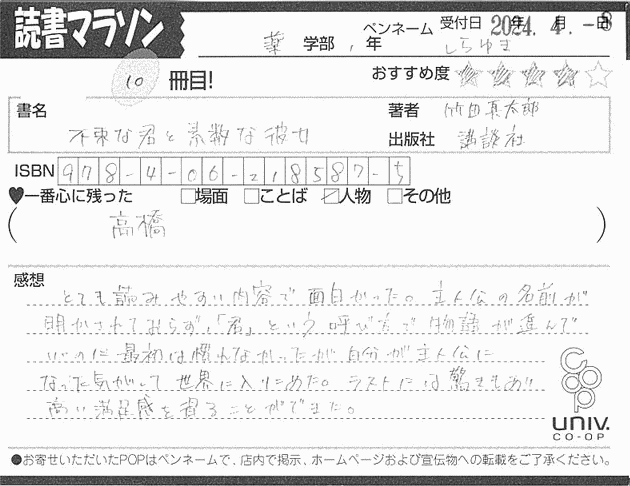 読書マラソン
薬 学部 1 年 ペンネーム しらゆき 受付日 2024年 月4.-8日
10 冊目! おすすめ度 ★★★★☆
書名 不束な君と素敵な彼女
著者 竹田真太郎
出版社 講談社
ISBN 978-4-06-218587-5
♥一番心に残った □場面 □ことば ☑人物 □その他
(高橋)
感想
とても読みやすい内容で面白かった。主人公の名前が
明かされておらず、「君」という呼び方で物語が進んで
いくのに最初は慣れなかったが自分が主人公に
なった気がして世界に入りこめた。ラストには驚きもあり
高い満足感を得ることができた。
coop
UNIV.
CO-OP
●お寄せいただいたPOPはペンネームで、店内で掲示、ホームページおよび宣伝物への転載をご了承ください。